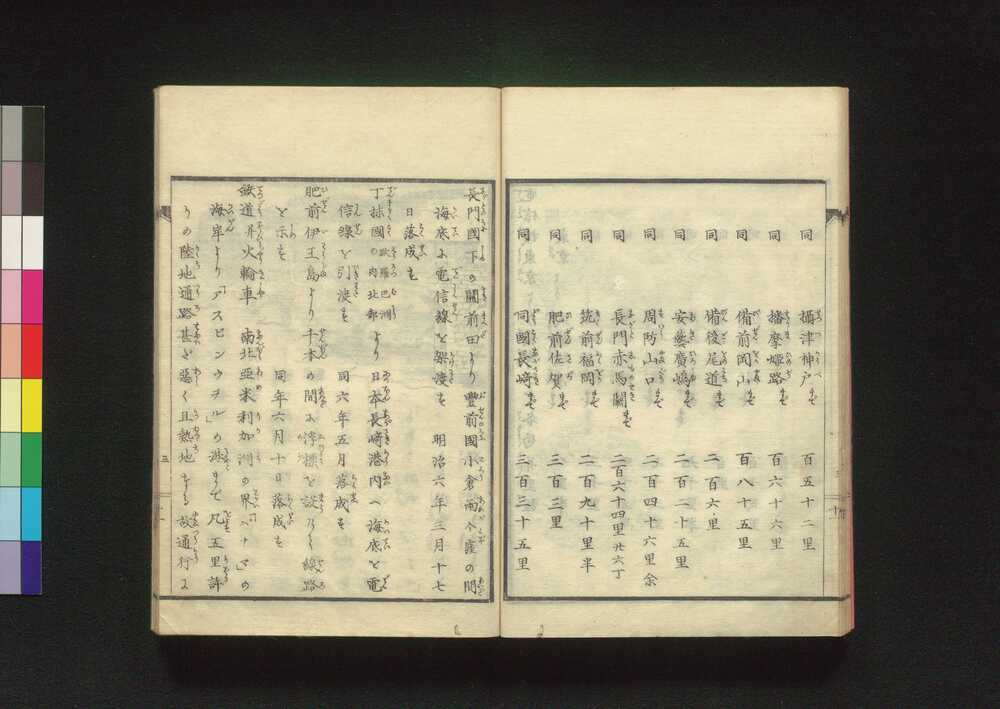 同 攝津神戸まで 百五十二里
同 播摩姫路まで 百六十六里
同 備前岡山まで 百八十五里
同 備後尾道まで 二百六里
同 安藝廣嶋まで 二百二十五里
同 周防山口まで 二百四十六里余
同 長門赤馬關まで 二百六十四里廿六丁
同 筑前福岡まで 二百九十里半
同 肥前佐賀まで 三百三里
同 同國長﨑まで 三百三十五里
長門國下の關前田より豐前國小倉雨ヶ窪の間
海底に電信線を架渡す 明治六年三月十七
日落成す
丁抹國の内北部歐羅巴洲より日本長﨑港内へ海底を電
信線を引渡す 同六年五月落成す
肥前伊王島より千本の間に浮標を設けて線路
を示す 同年六月十日落成す
鉄道并火輪車 南北亞米利加洲の界「 」の
海岸より「アスピンウヲル」の港まで凡五里許
りの陸地通路甚だ惡く且熱地なる故通行に
三